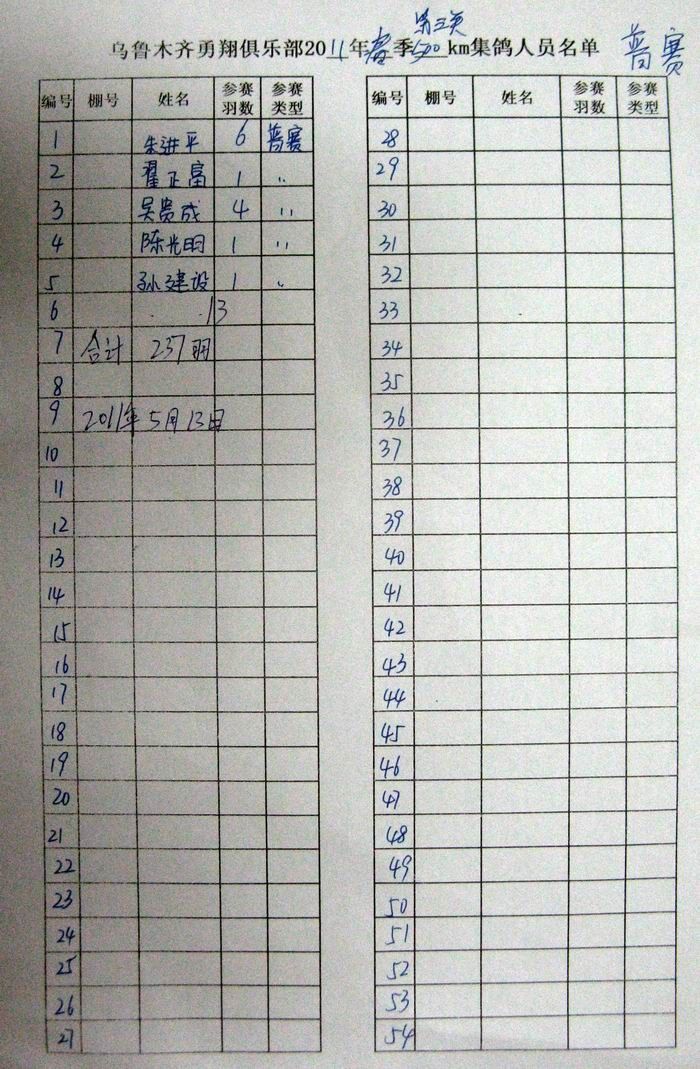 第三页
乌鲁木齐勇翔俱乐部2011年春季500km集鸽人员名单 普赛
编号 棚号 姓名 参赛羽数 参赛类型
1 朱进平 6 普赛
2 翟正富 1 〃
3 吴贵成 4 〃
4 陈光明 1 〃
5 孙建设 1 〃
6 13
7 合计 237羽
8
9 2011年5月13日
10
11
12
13
14
15
16
17
18
19
20
21
22
23
24
25
26
27
编号 棚号 姓名 参赛羽数 参赛类型
28
29
30
31
32
33
34
35
36
37
38
39
40
41
42
43
44
45
46
47
48
49
50
51
52
53
54